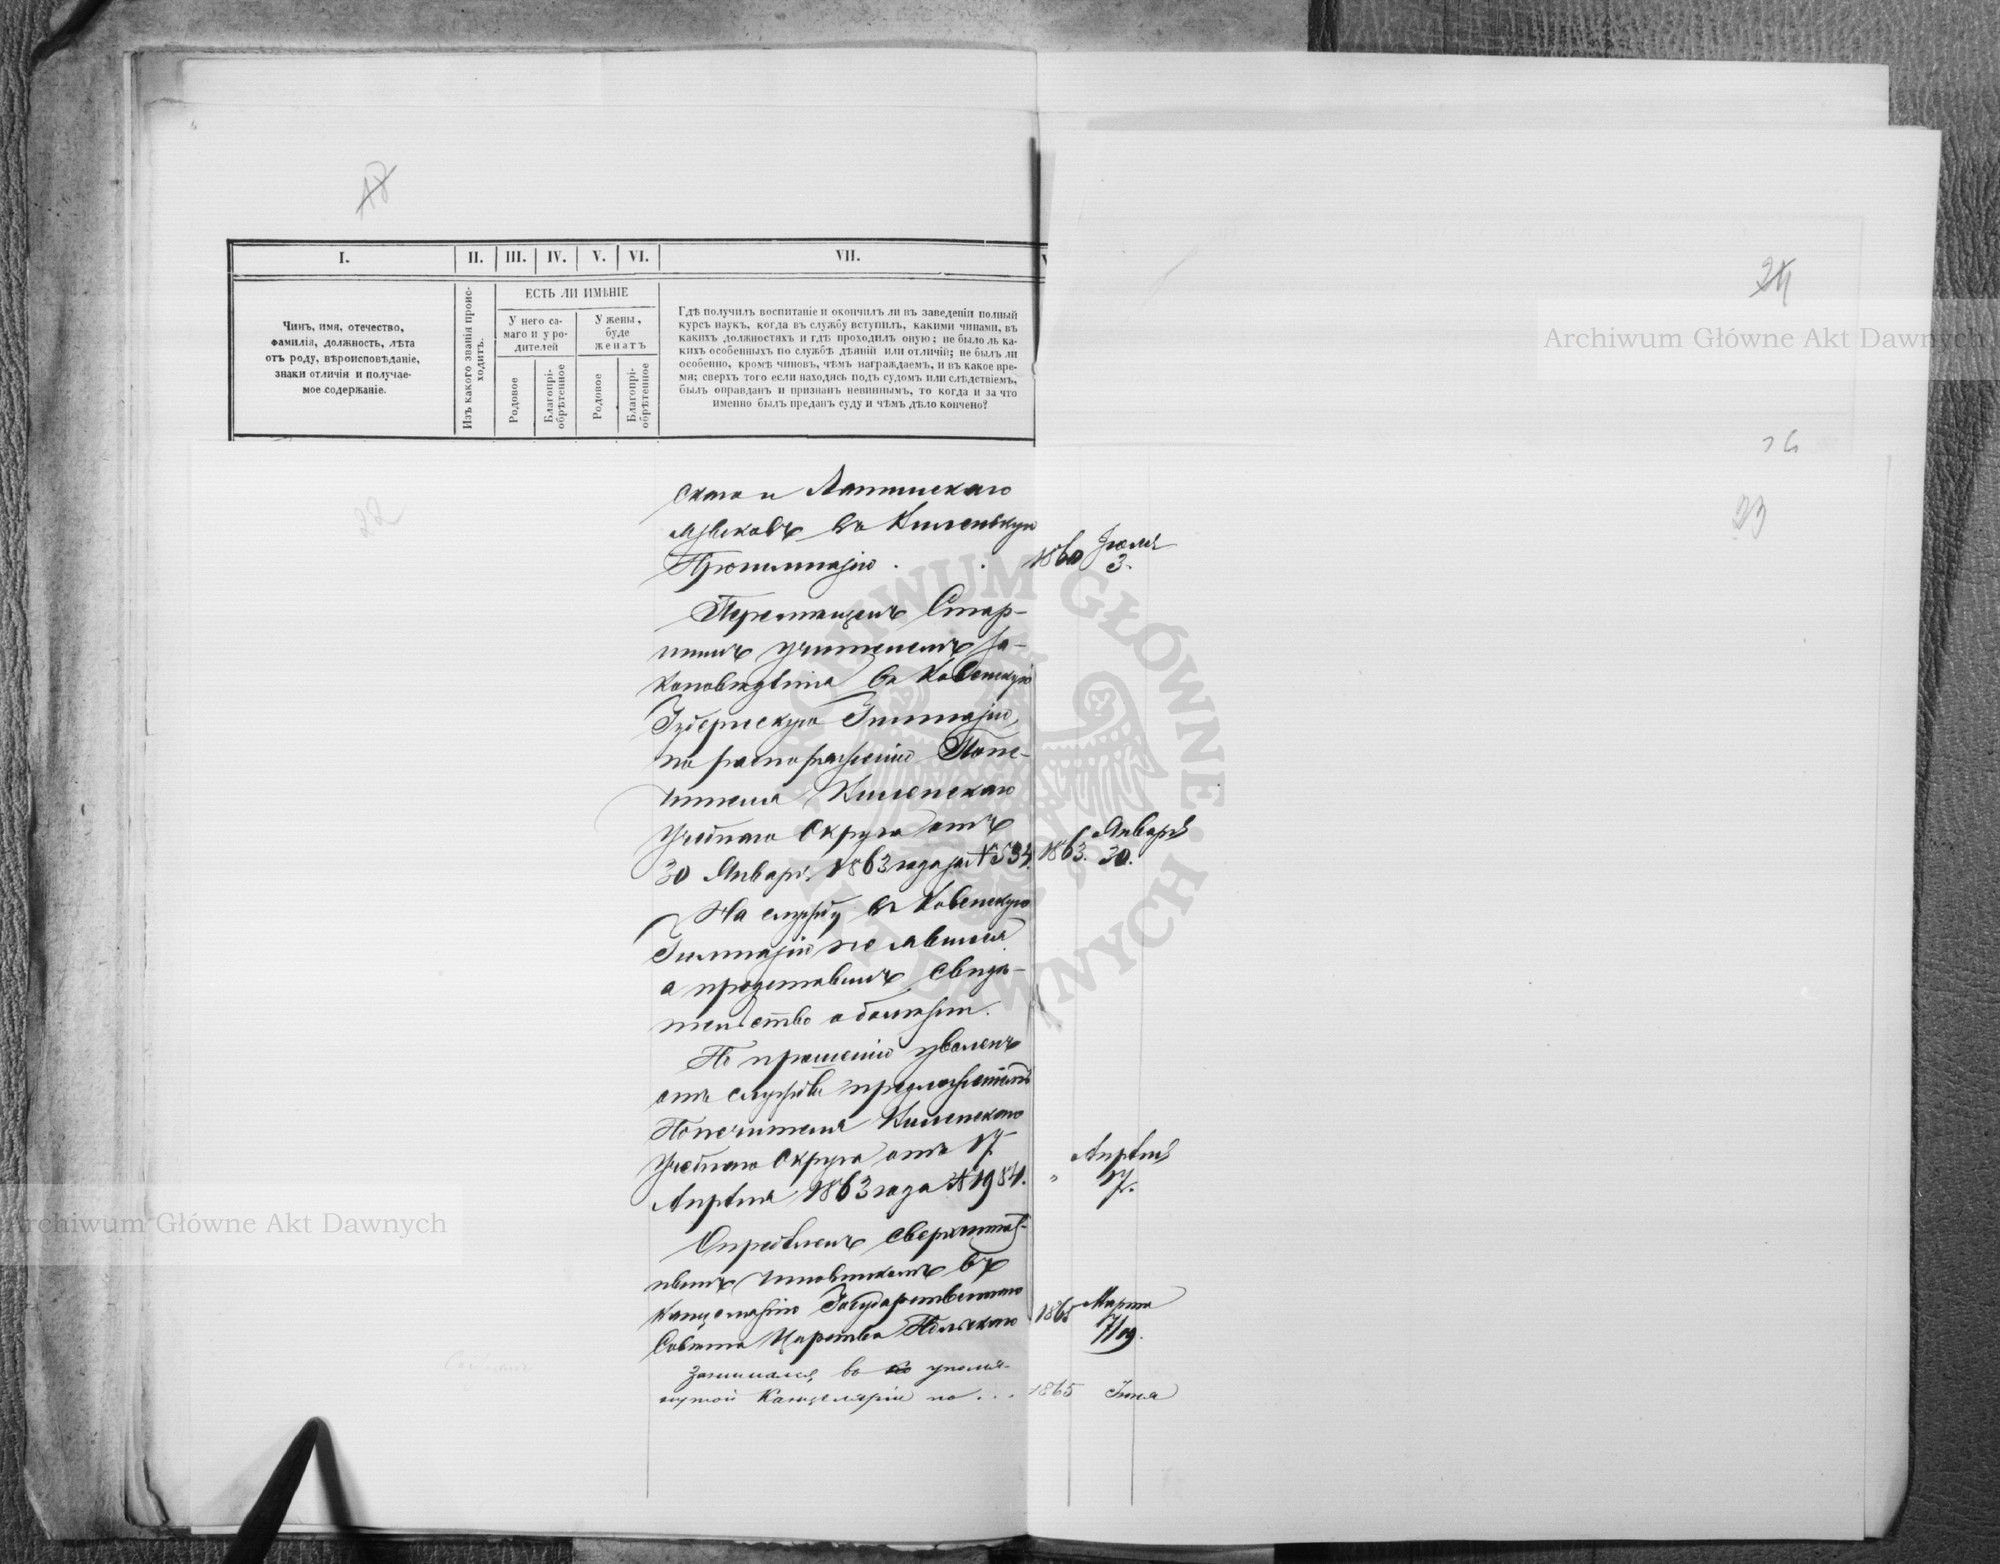 18
I.
II.
III.
IV.
V.
VI.
VII.
Чинъ, имя, отечество,
фамилія, должность, лѣта
отъ роду, вѣроисповѣданіе,
знаки отличія и получае-
мое содержаніе.
Изъ какого званія проис-
ходитъ.
ЕСТЬ ЛИ ИМѢНІЕ
У него са-
маго и у ро-
дителей
У жены,
буде
женатъ
Родовое
Благопрі-
обрѣтенное
Родовое
Благопрі-
обрѣтенное
Гдѣ получилъ воспитаніе и окончилъ ли въ заведеніи полный
курсъ наукъ, когда въ службу вступилъ, какими чинами, въ
какихъ должностяхъ и гдѣ проходилъ оную; не было ль ка-
кихъ особенныхъ по службѣ дѣяній или отличій; не былъ ли
особенно, кромѣ чиновъ, чѣмъ награждаемъ, и въ какое вре-
мя; сверхъ того если находясь подъ судомъ или слѣдствіемъ,
былъ оправданъ и признанъ невиннымъ, то когда и за что
именно былъ преданъ суду и чѣмъ дѣло кончено?
24
26
23
22
скаго и Латинскаго
языковъ въ Виленскую
Прогимназію . . 1860 Іюля 3.
Перемѣщенъ Стар-
шимъ учителемъ За-
коновѣдѣнія въ Ковенскую
Губернскую Гимназію,
по распоряженію Попе-
чителя Виленскаго
Учебнаго Округа отъ
30 Января 1863 года за № 534. 1863. Января 30.
На службу въ Ковенскую
Гимназію не явился
а представилъ свидѣ-
тельство о болѣзни.
По прошенію уволенъ
отъ службы предложеніемъ
Попечителя Виленскаго
Учебнаго Округа отъ 17
Апрѣля 1863 года № 1984. " Апрѣля 17.
Опредѣленъ сверхштат-
нымъ чиновникомъ въ
Канцелярію Государственнаго
Совѣта Царства Польскаго 1865 Марта 7/19.
Занимался въ упомя-
нутой Канцеляріи по . . . 1865 Іюня
Archiwum Główne Akt Dawnych
Archiwum Główne Akt Dawnych
ARCHIWUM GŁÓWNE AKT DAWNYCH